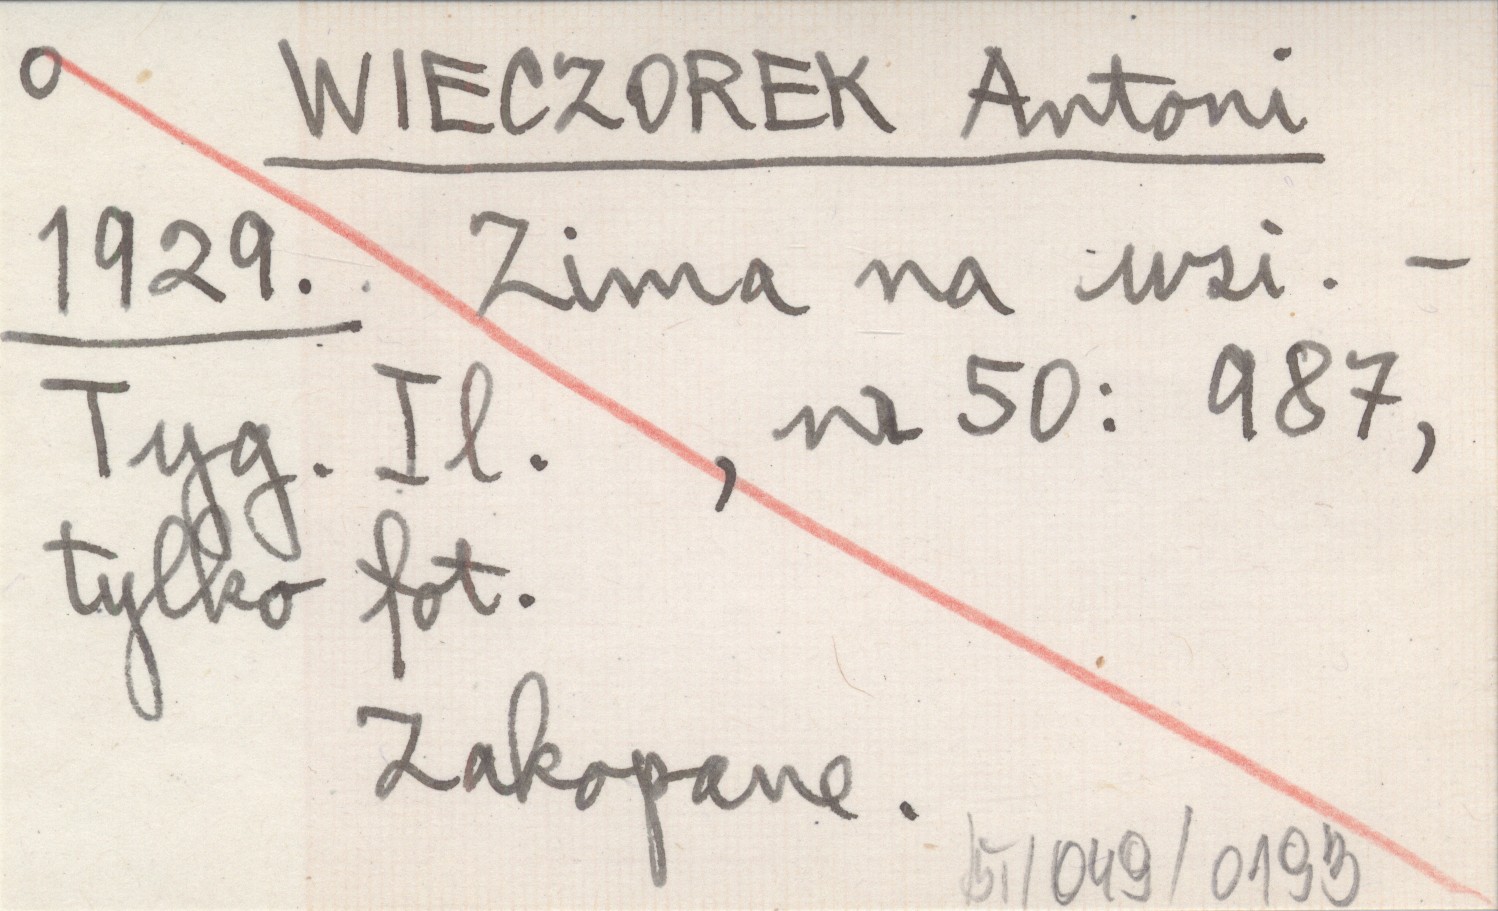 o WIECZOREK Antoni
1929. Zima na wsi. -
Tyg. Il. , nr 50: 987,
tylko fot.
Zakopane.
/049/0193